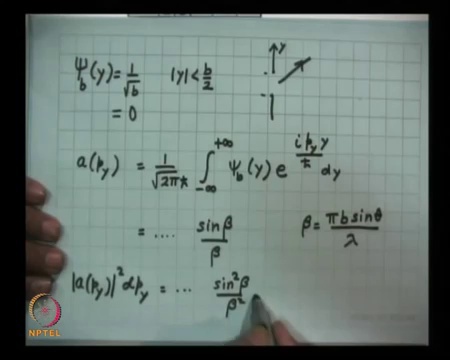 Ψ_b(y) = 1/√b |y| < b/2
= 0
y
a(p_y) = 1/√(2πħ) ∫_{-∞}^{+∞} Ψ_b(y) e^{i p_y y/ħ} dy
= .... sinβ/β β = πb sinθ/λ
|a(p_y)|² dp_y = ... sin²β/β²
NPTEL